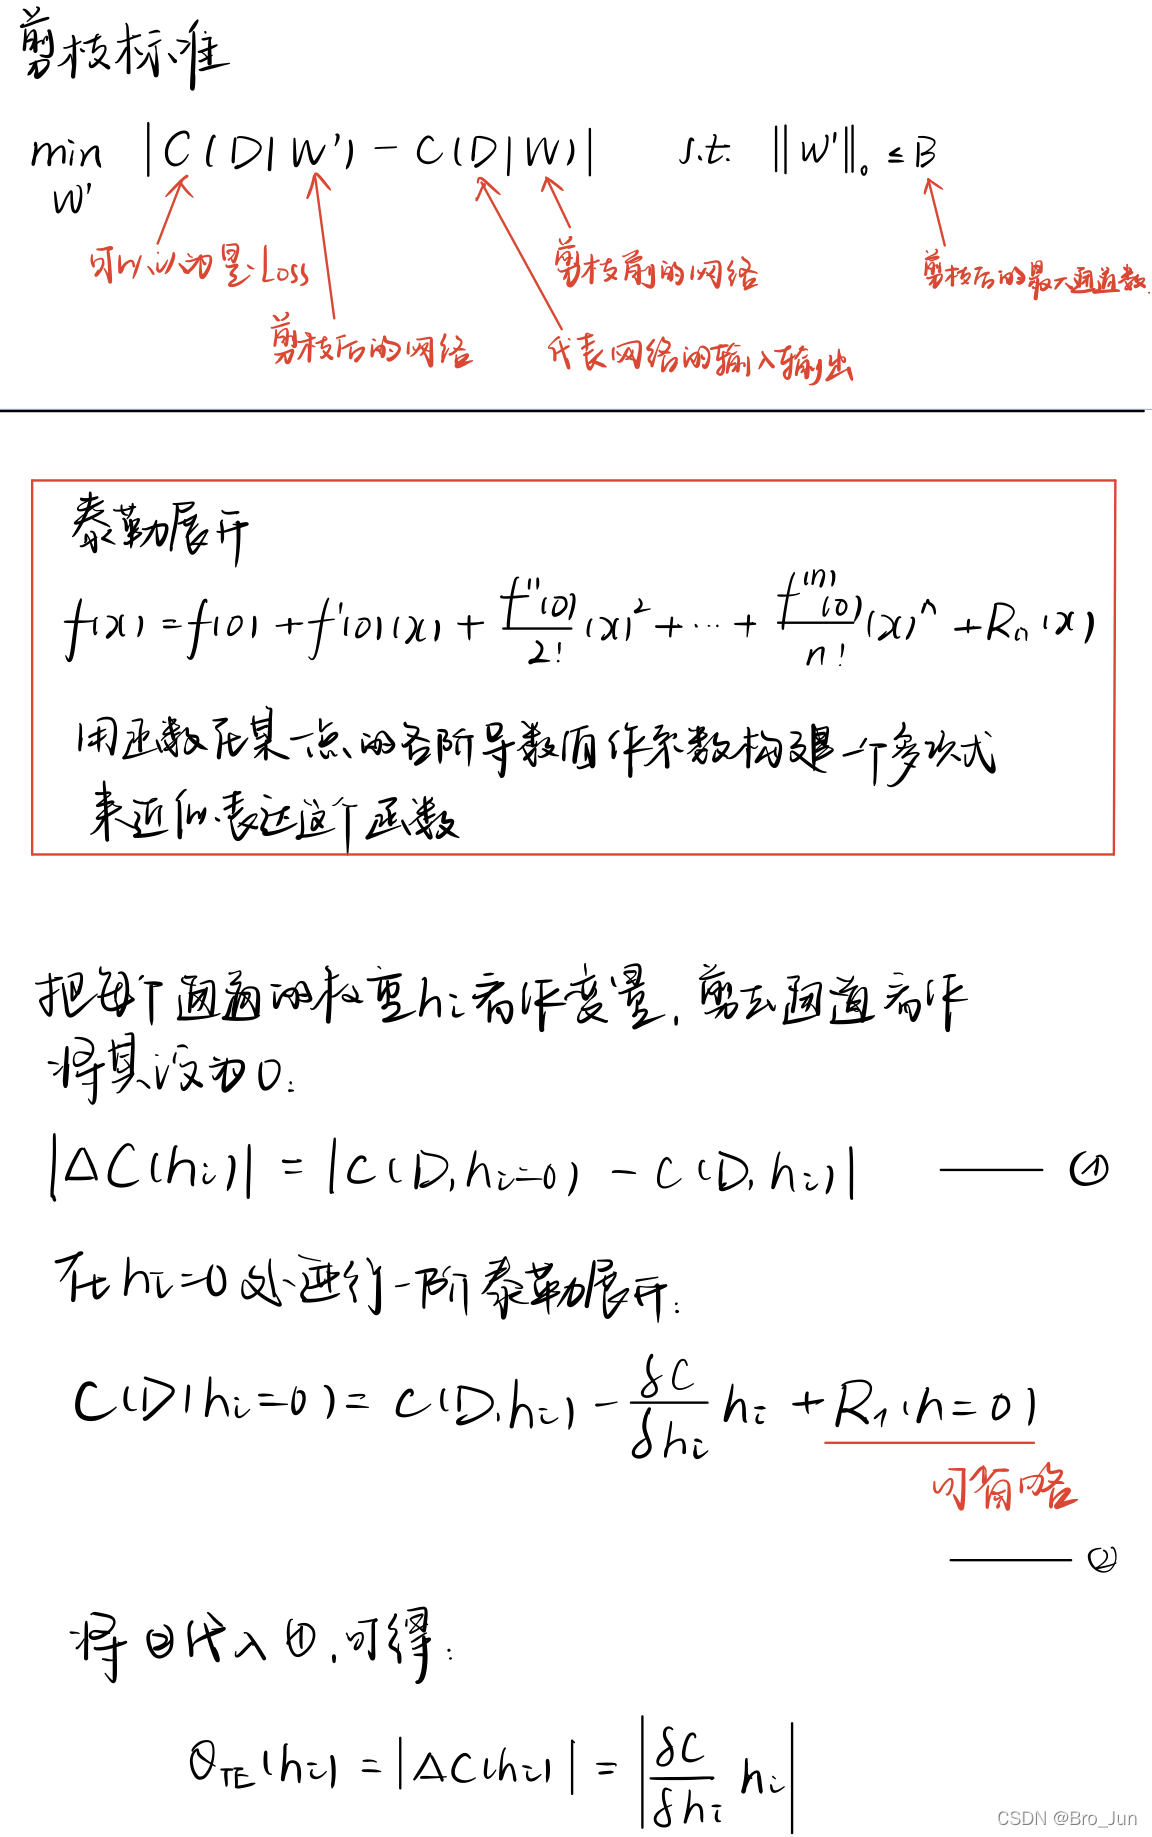 剪枝标准
min |C(D|W') - C(D|W)| s.t. ||W'||₀ ≤ B
W'
可以认为是Loss
剪枝前的网络
剪枝后的最大通道数
剪枝后的网络
代表网络的输入输出
泰勒展开
f(x) = f(0) + f'(0)(x) + f''(0)/2! (x)² + ... + f⁽ⁿ⁾(0)/n! (x)ⁿ + Rₙ(x)
用函数在某一点的各阶导数值作系数构建一个多项式
来近似表达这个函数
把每个通道的权重hᵢ看作变量,剪去通道看作
将其设为0:
|ΔC(hᵢ)| = |C(D,hᵢ=0) - C(D,hᵢ)| —— ①
在hᵢ=0处进行一阶泰勒展开:
C(D|hᵢ=0) = C(D,hᵢ) - δC/δhᵢ hᵢ + R₁(h=0)
可省略
—— ②
将②代入①,可得:
Θ_TE(hᵢ) = |ΔC(hᵢ)| = |δC/δhᵢ hᵢ|
CSDN @Bro_Jun